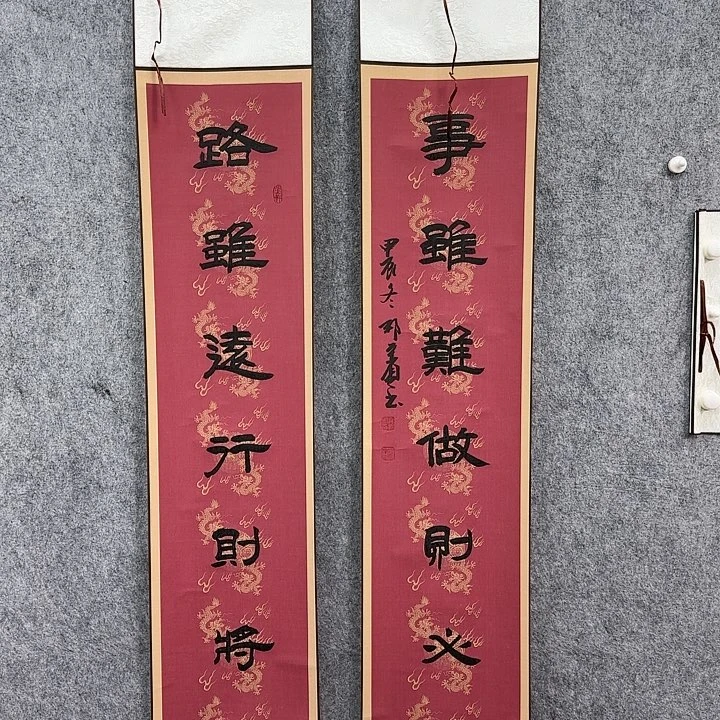 事雖難做則必
路雖遠行則將
甲辰冬